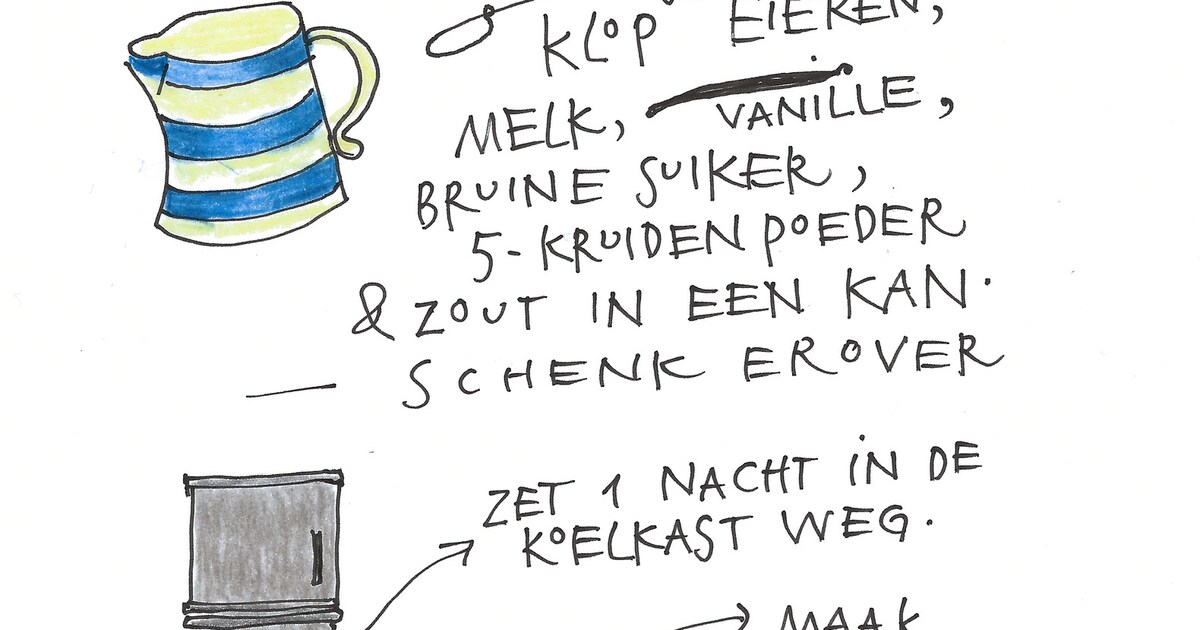 KLOP EIEREN,
MELK, VANILLE,
BRUINE SUIKER,
5-KRUIDENPOEDER
& ZOUT IN EEN KAN.
SCHENK EROVER
ZET 1 NACHT IN DE
KOELKAST WEG.
MAAK